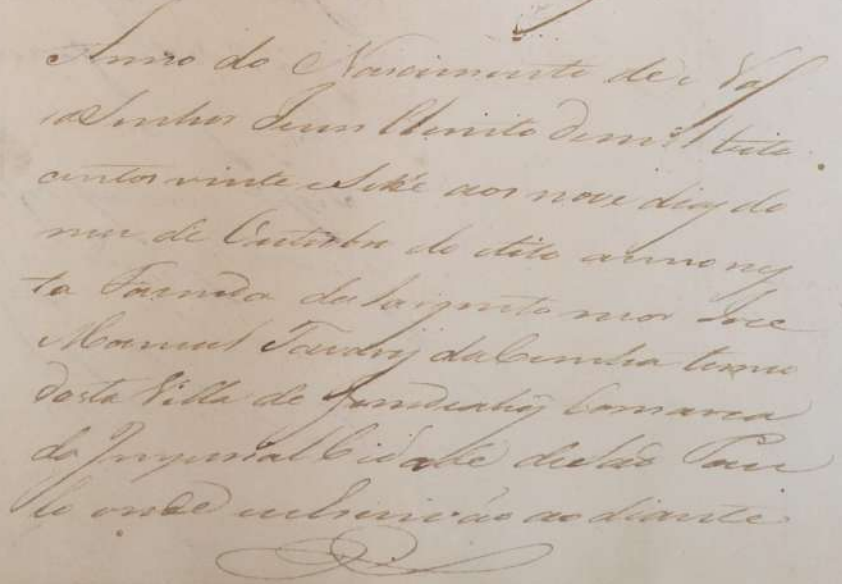 Anno do Nascimento de Nos
so Senhor Jesus Christo de mil oito
centos vinte e Sete aos nove dias do
mes de Outubro do dito anno nes
ta Fazenda do Sargento mor Jose
Manuel Tavares da Cunha termo
desta Villa de Jundiahy Comarca
da Imperial Cidade de São Pau
lo onde ao diante